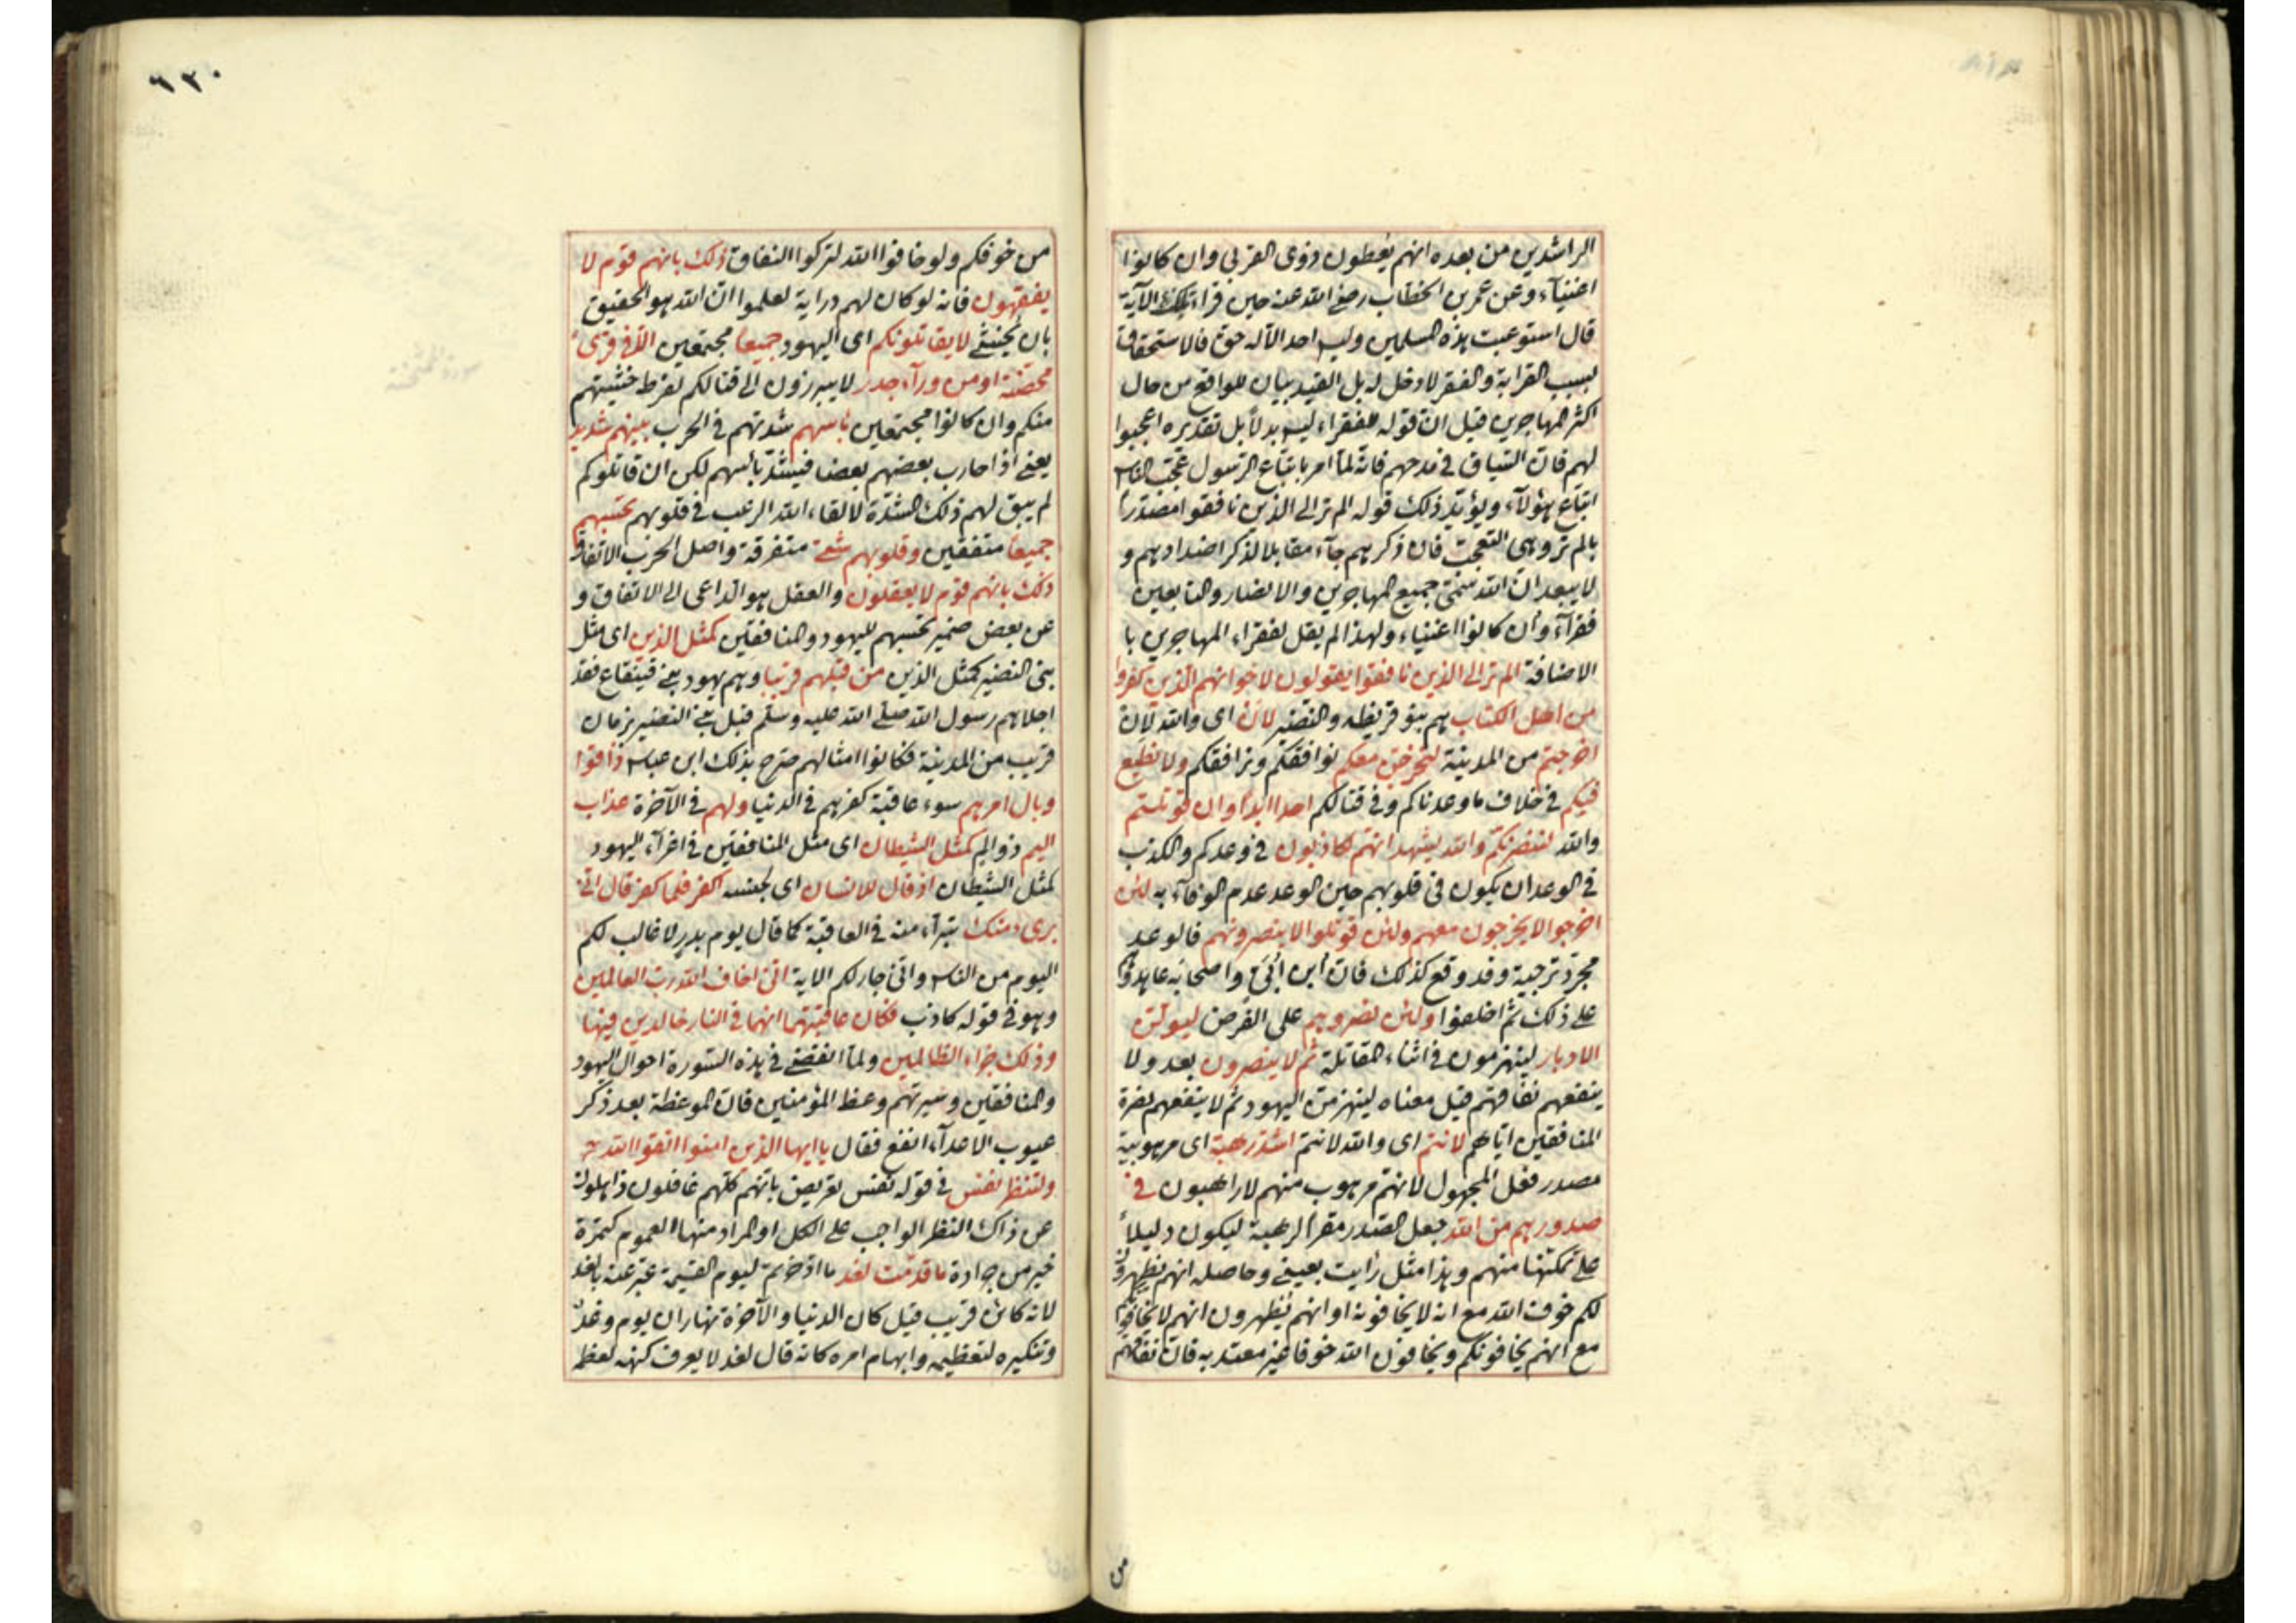 الراشدين من بعده انهم يعطون ذوى القربى وان كانوا
اغنيآء وعن عمر بن الخطاب رضى الله عنه حين قراء تلك الآية
قال استوعبت هذه المسلمين وليس احد الآله حق فالاستحقاق
لسبب القرابة والفقر لا دخل له بل القيد بيان للواقع من حال
اكثر المهاجرين قيل ان قوله للفقراء ليس بدلاً بل تقديره اعجبوا
لهم فان السياق فى مدحهم فانه لما امر باتباع الرسول عجب الناس
اتباع هؤلآء ويؤيد ذلك قوله الم تر الى الذين نافقوا مصدرا
بالم تر وهى التعجب فان ذكرهم جآء مقابلا لذكر اضدادهم و
لا يبعد ان الله سمى جميع المهاجرين والانصار والتابعين
فقرآء وان كانوا اغنياء ولهذا لم يقل لفقراء المهاجرين با
الاضافة الم تر الى الذين نافقوا يقولون لاخوانهم الذين كفروا
من اهل الكتاب هم بنو قريظه والنضير لان اى والله لان
اخرجتم من المدينة لنخرجن معكم نوافقكم ونرافقكم ولا نطيع
فيكم فى خلاف ما وعدناكم وفى قتالكم احدا ابدا وان قوتلتم
والله لننصرنكم والله يشهد انهم لكاذبون فى وعدكم والكذب
فى الوعد ان يكون فى قلوبهم حين الوعد عدم الوفآء به لئن
اخرجوا لا يخرجون معهم ولئن قوتلوا لا ينصرونهم فالوعد
مجرد ترجية وقد وقع كذلك فان ابن ابى واصحابه عاهدوا
على ذلك ثم اخلفوا ولئن نصروهم على الفرض ليولن
الادبار لينهزمون فى اثناء المقاتلة ثم لا ينصرون بعد ولا
ينفعهم نفاقهم قيل معناه لينهزمن اليهود ثم لا ينفعهم نصرة
المنافقين اياهم لانتم اى والله لانتم اشد رهبة اى مرهوبية
مصدر فعل المجهول لانهم مرهوب منهم لا راهبون فى
صدورهم من الله جعل الصدر مقرا لرهبة ليكون دليلاً
على تمكنها منهم وهذا مثل رايت بعينى وحاصله انهم يظهرون
لكم خوف الله مع انه لا يخافونه او انهم يظهرون انهم لا يخافونكم
مع انهم يخافونكم ويخافون الله خوفا غير معتد به فان نفاقهم
من
٦٣٠
من خوفكم ولو خافوا الله لتركوا النفاق ذلك بانهم قوم لا
يفقهون فانه لو كان لهم دراية لعلموا ان الله هو الحقيق
بان يخشى لا يقاتلونكم اى اليهود جميعا مجتمعين الا فى قرى
محصنة او من ورآء جدر لا يبرزون الى قتالكم لفرط خشيتهم
منكم وان كانوا مجتمعين باسهم شدتهم فى الحرب بينهم شديد
يعنى اذا حارب بعضهم بعضا فيشتد بائسهم لكن ان قاتلوكم
لم يبق لهم ذلك الشدة لالقاء الله الرعب فى قلوبهم تحسبهم
جميعا متفقين وقلوبهم شتى متفرقة واصل الحرب الاتفاق
ذلك بانهم قوم لا يعقلون والعقل هو الداعى الى الاتفاق و
عن بعض ضمير تحسبهم لليهود والمنافقين كمثل الذين اى مثل
بنى النضير كمثل الذين من قبلهم قريبا وهم يهود بنى قينقاع فقد
اجلاهم رسول الله صلى الله عليه وسلم قبل بنى النضير بزمان
قريب من المدينة فكانوا امثالهم صرح بذلك ابن عباس ذاقوا
وبال امرهم سوء عاقبة كفرهم فى الدنيا ولهم فى الآخرة عذاب
اليم ذو الم كمثل الشيطان اى مثل المنافقين فى اغرآء اليهود
كمثل الشيطان اذ قال للانسان اى لجنسه اكفر فلما كفر قال انى
برىء منك تبرآء منه فى العاقبة كما قال يوم بدر لا غالب لكم
اليوم من الناس وانى جار لكم الاية انى اخاف الله رب العالمين
وهو فى قوله كاذب فكان عاقبتهما انهما فى النار خالدين فيها
وذلك جزاء الظالمين ولما انقضى فى هذه السورة احوال اليهود
والمنافقين وسيرتهم وعظ المؤمنين فان الموعظة بعد ذكر
عيوب الاعدآء انفع فقال يا ايها الذين امنوا اتقوا الله
ولتنظر نفس فى قوله نفس تعريض بانهم كلهم غافلون ذاهلون
عن ذاك النظر الواجب على الكل او المراد منها العموم كتمرة
خير من جرادة ما قدمت لغد ما ادخرتم ليوم القيمة عبر عنه بالغد
لانه كائن قريب قيل كان الدنيا والآخرة نهاران يوم وغد
وتنكيره لتعظيمه وابهام امره كانه قال لغد لا يعرف كنهه لعظمه